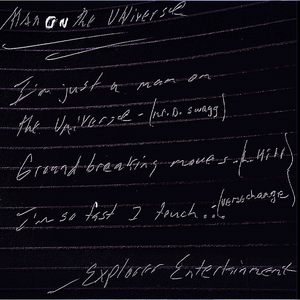 Man on the Universe
I'm just a man on
the Universe - (Mr. D. Swagg)
Ground breaking moves - (Hill)
I'm so fast I touch... (verse change)
Explorer Entertainment